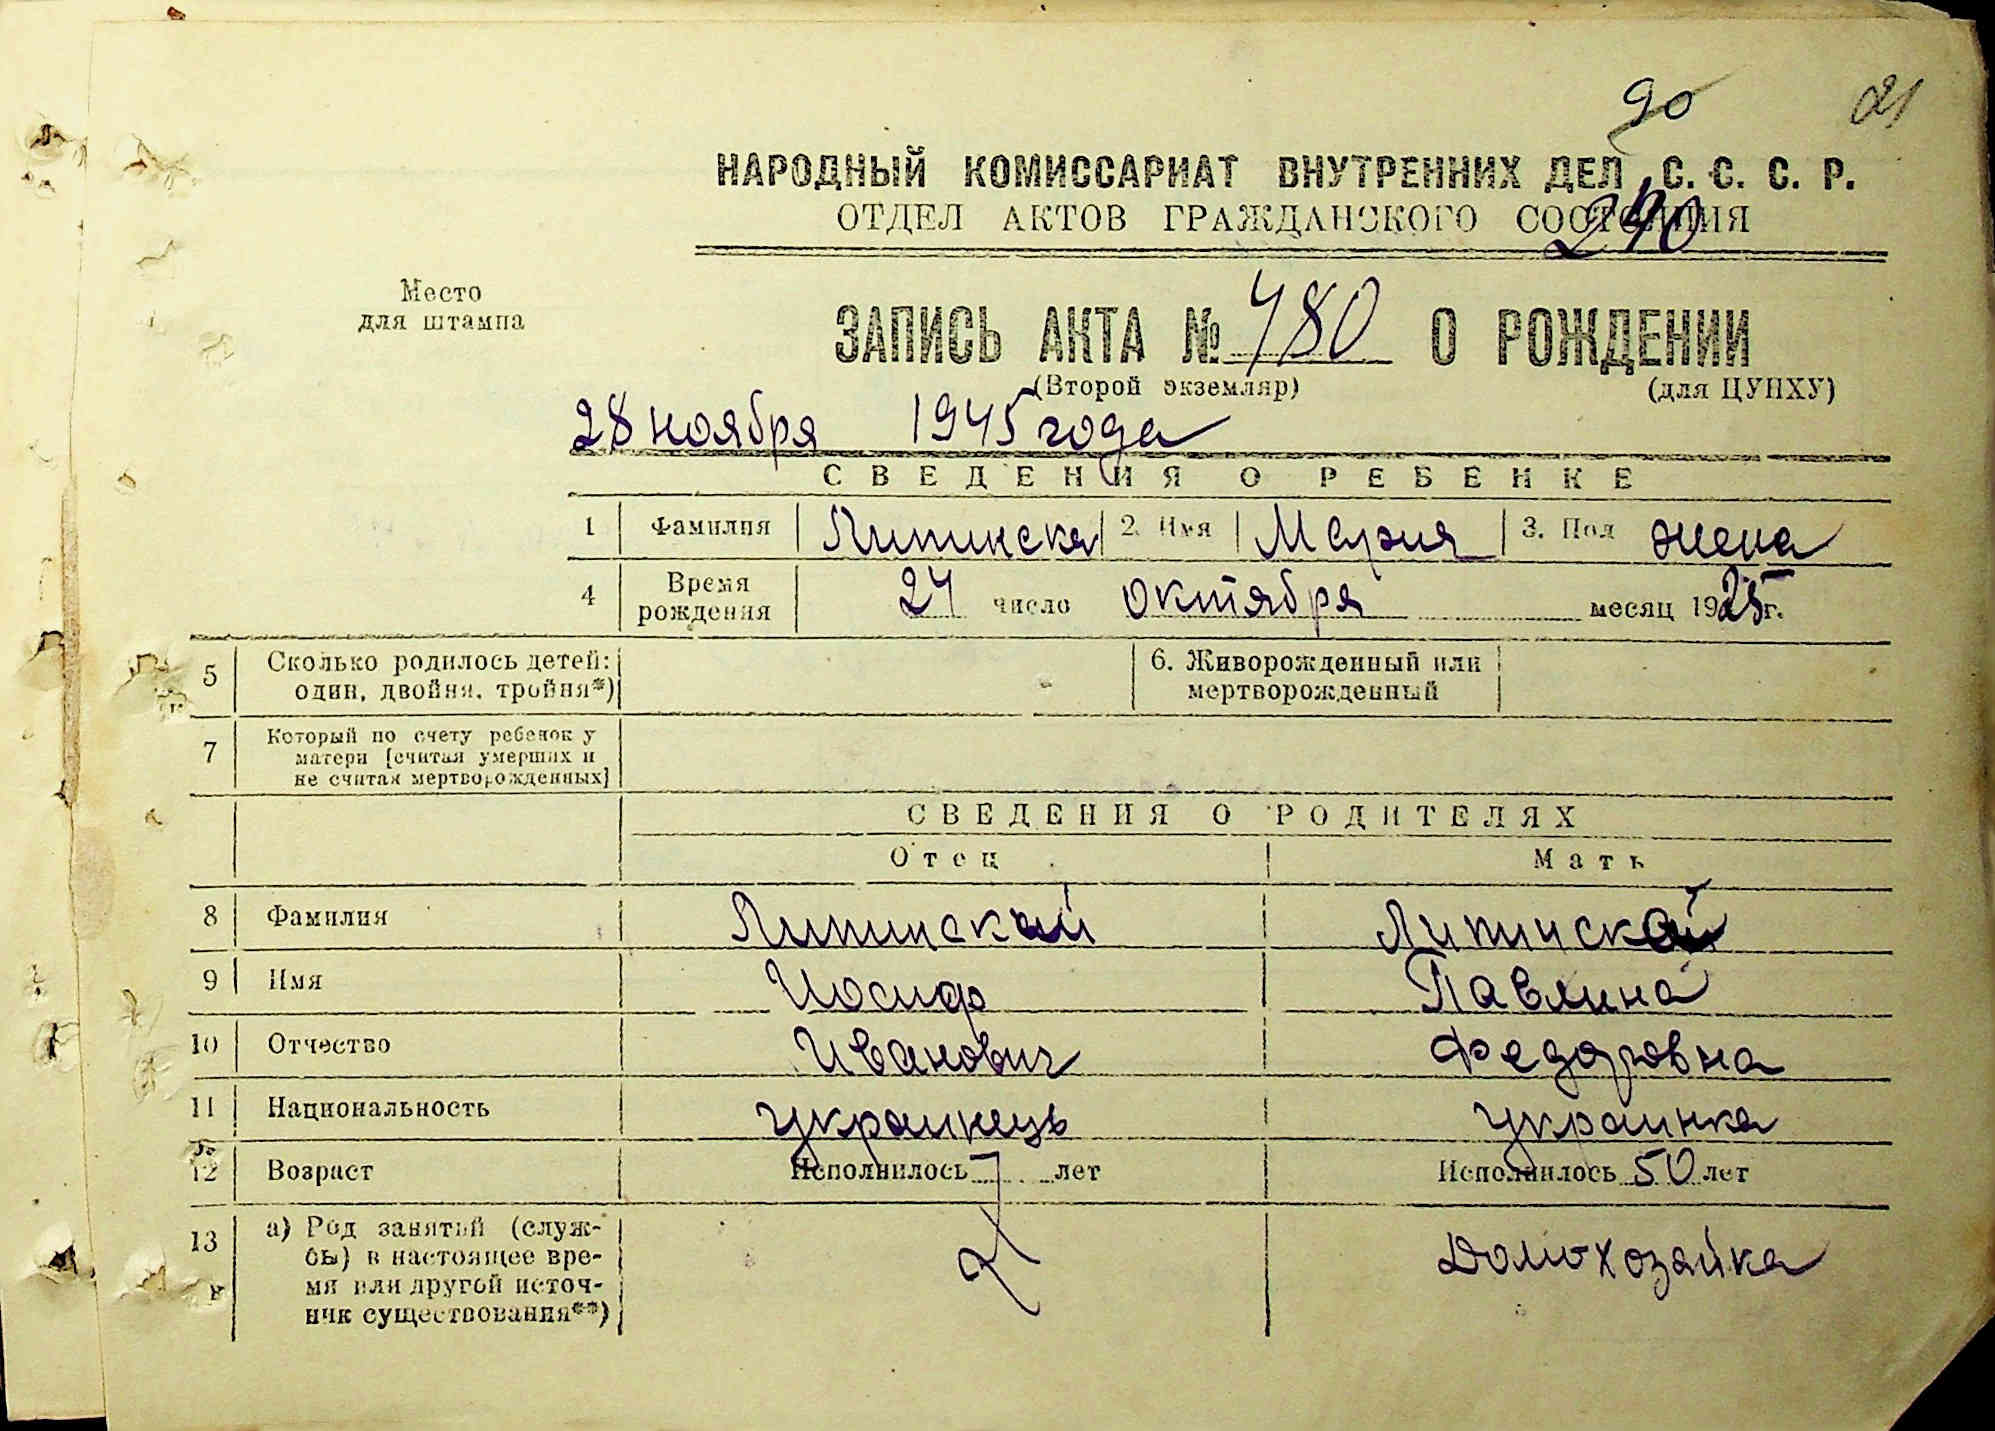 90 21
НАРОДНЫЙ КОМИССАРИАТ ВНУТРЕННИХ ДЕЛ С. С. С. Р.
ОТДЕЛ АКТОВ ГРАЖДАНСКОГО СОСТОЯНИЯ
Место
для штампа
ЗАПИСЬ АКТА № 480 О РОЖДЕНИИ
(Второй экземпляр) (для ЦУНХУ)
28 ноября 1945 года
СВЕДЕНИЯ О РЕБЕНКЕ
1 Фамилия Липинска 2. Имя Мария 3. Пол жена
4 Время рождения 24 число октября месяц 1925 г.
5 Сколько родилось детей: один, двойня, тройня*) 6. Живорожденный или мертворожденный
7 Который по счету ребенок у матери [считая умерших и не считая мертворожденных]
СВЕДЕНИЯ О РОДИТЕЛЯХ
Отец Мать
8 Фамилия Липинский Липинская
9 Имя Иосиф Павлина
10 Отчество Иванович Федоровна
11 Национальность украинець украинка
12 Возраст Исполнилось лет Исполнилось 50 лет
13 а) Род занятий (служ-
бы) в настоящее вре-
мя или другой источ-
ник существования**) Домохозайка